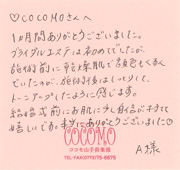 ♡COCOMOさんへ
1ヶ月間ありがとうございました。
ブライダルエステは初めてでしたが、
施術前に乾燥肌で顔色もくすん
でいたのが、施術後はしっとりして、
トーンアップしたように感じます。
結婚式前にお肌に少し自信がもてて
嬉しいです!本当にありがとうございました♡
COCOMO
ココモ山手倶楽部
A様